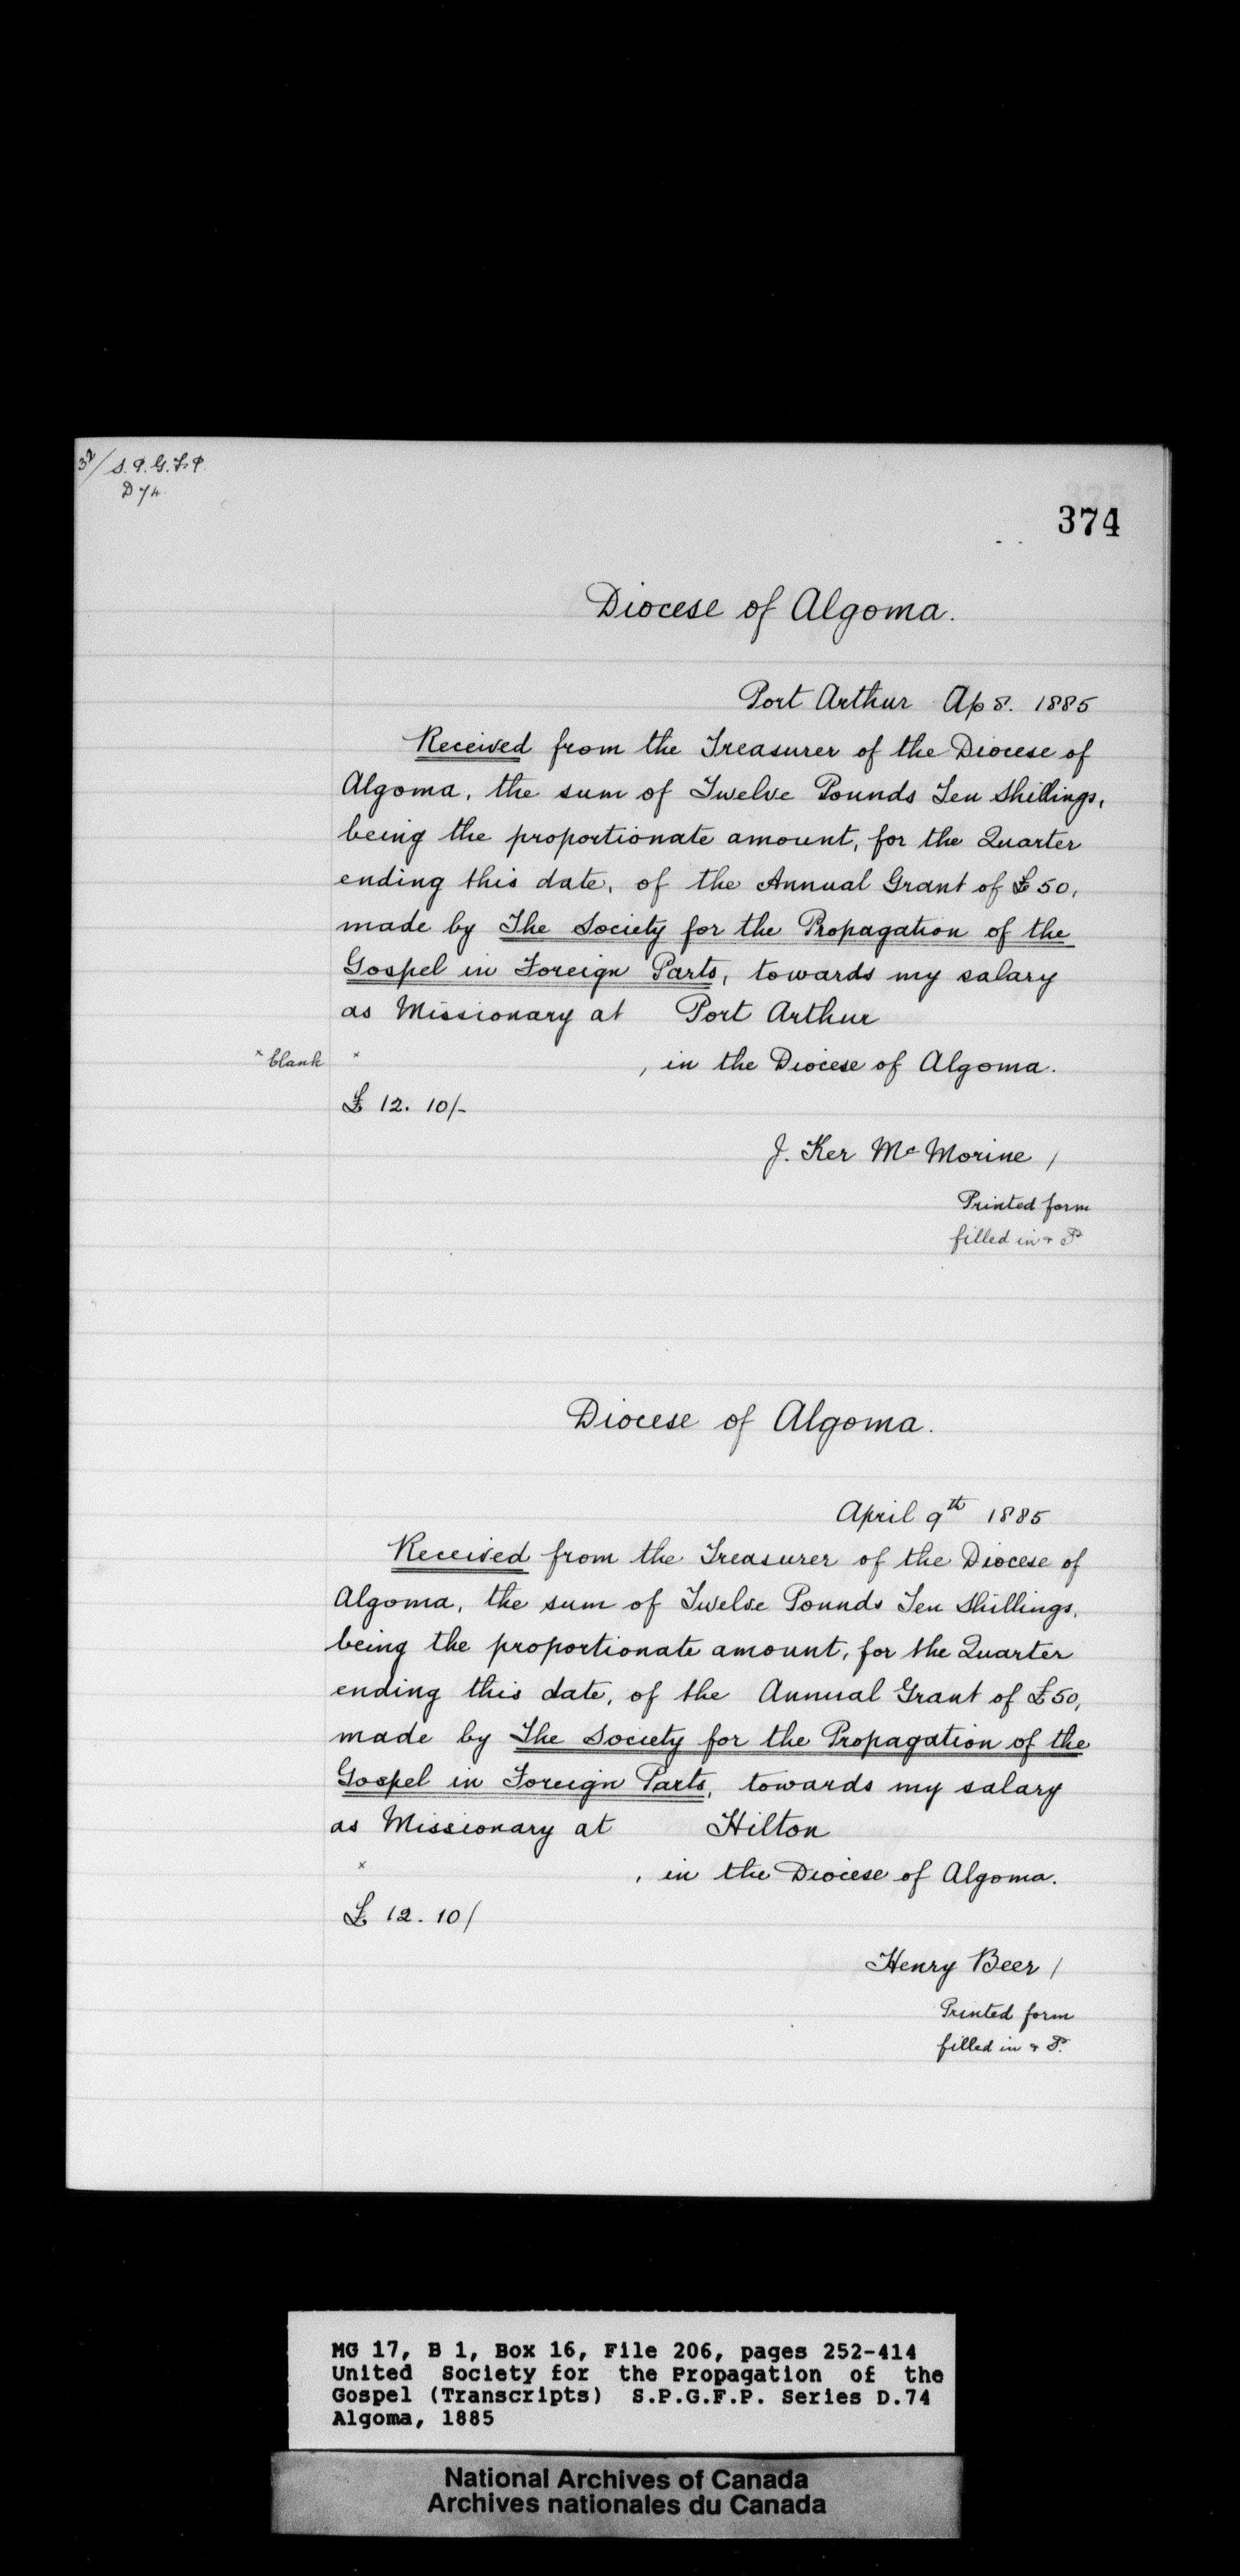 32/ S.P.G.F.P.
D 74
374
Diocese of Algoma.
Port Arthur Ap 8. 1885
Received from the Treasurer of the Diocese of
Algoma, the sum of Twelve Pounds Ten Shillings,
being the proportionate amount, for the Quarter
ending this date, of the Annual Grant of £50,
made by The Society for the Propagation of the
Gospel in Foreign Parts, towards my salary
as Missionary at Port Arthur
× blank × , in the Diocese of Algoma.
£ 12. 10/-
J. Ker McMorine /
Printed form
filled in & P.
Diocese of Algoma.
April 9th 1885
Received from the Treasurer of the Diocese of
Algoma, the sum of Twelve Pounds Ten Shillings,
being the proportionate amount, for the Quarter
ending this date, of the Annual Grant of £50,
made by The Society for the Propagation of the
Gospel in Foreign Parts, towards my salary
as Missionary at Hilton
× , in the Diocese of Algoma.
£ 12. 10/
Henry Beer /
Printed form
filled in & P.
MG 17, B 1, Box 16, File 206, pages 252-414
United Society for the Propagation of the
Gospel (Transcripts) S.P.G.F.P. Series D.74
Algoma, 1885
National Archives of Canada
Archives nationales du Canada